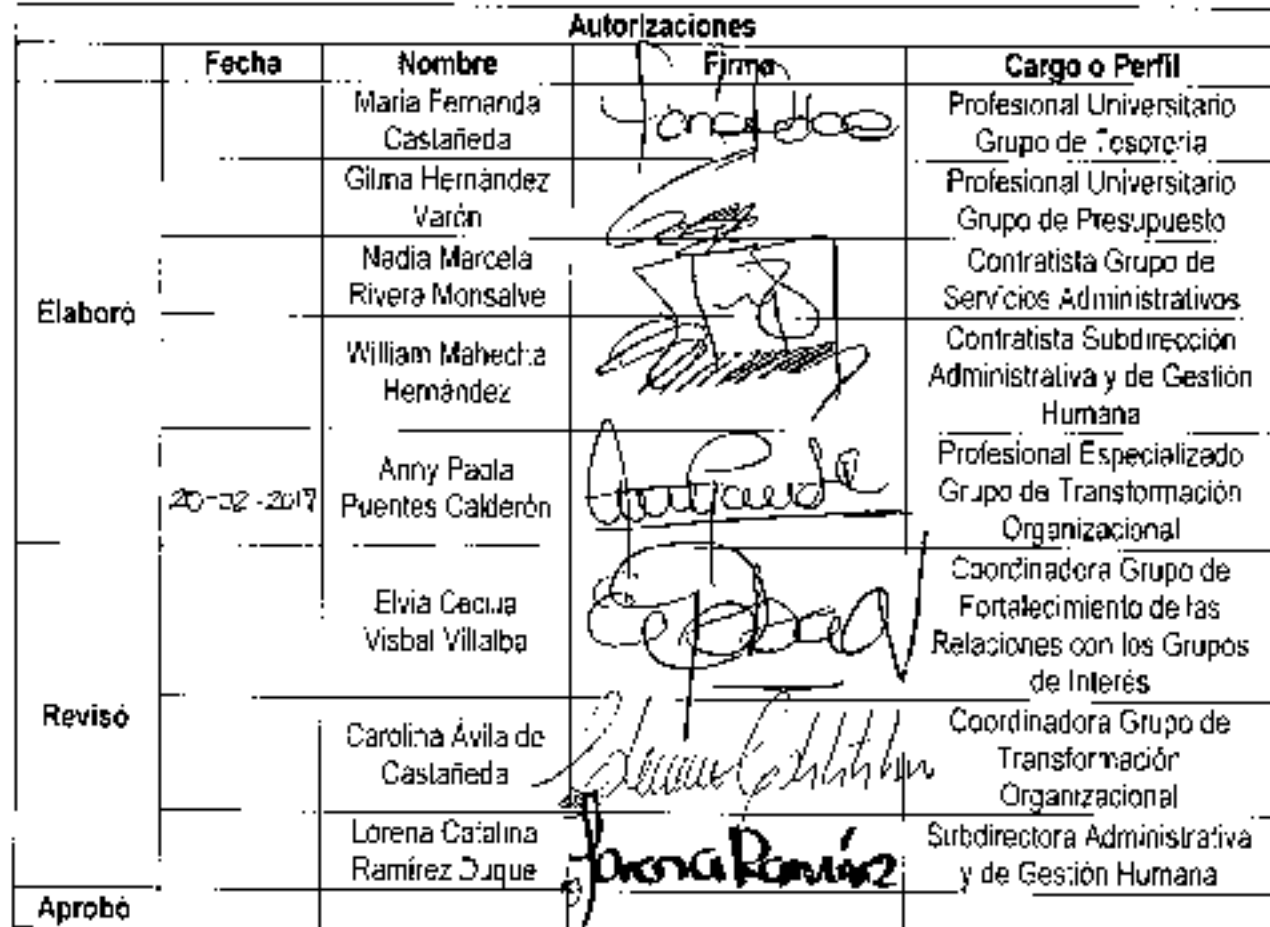 Autorizaciones
Fecha Nombre Firma Cargo o Perfil
Elaboró
Maria Fernanda
Castañeda
Profesional Universitario
Grupo de Tesorería
Gilma Hernández
Varón
Profesional Universitario
Grupo de Presupuesto
Nadia Marcela
Rivera Monsalve
Contratista Grupo de
Servicios Administrativos
William Mahecha
Hernández
Contratista Subdirección
Administrativa y de Gestión
Humana
20-02-2017
Anny Paola
Puentes Calderón
Profesional Especializado
Grupo de Transformación
Organizacional
Revisó
Elvia Cecilia
Visbal Villalba
Coordinadora Grupo de
Fortalecimiento de las
Relaciones con los Grupos
de Interés
Carolina Ávila de
Castañeda
Coordinadora Grupo de
Transformación
Organizacional
Lorena Catalina
Ramírez Duque
Lorena Ramírez
Subdirectora Administrativa
y de Gestión Humana
Aprobó